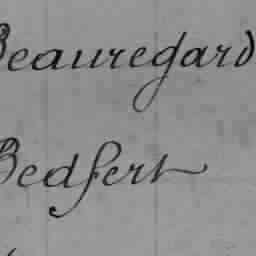 Beauregard
Bedfert